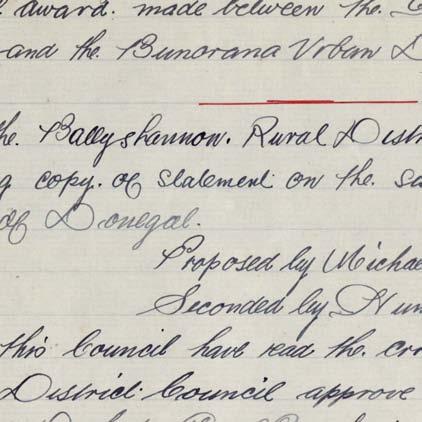 award. made between the.
and the Bunorana Urban D
the. Ballyshannon. Rural Distr
g copy. of statement on the. su
of Donegal.
Proposed by Michae
Seconded by Hu
this Council have read the cor
District Council approve